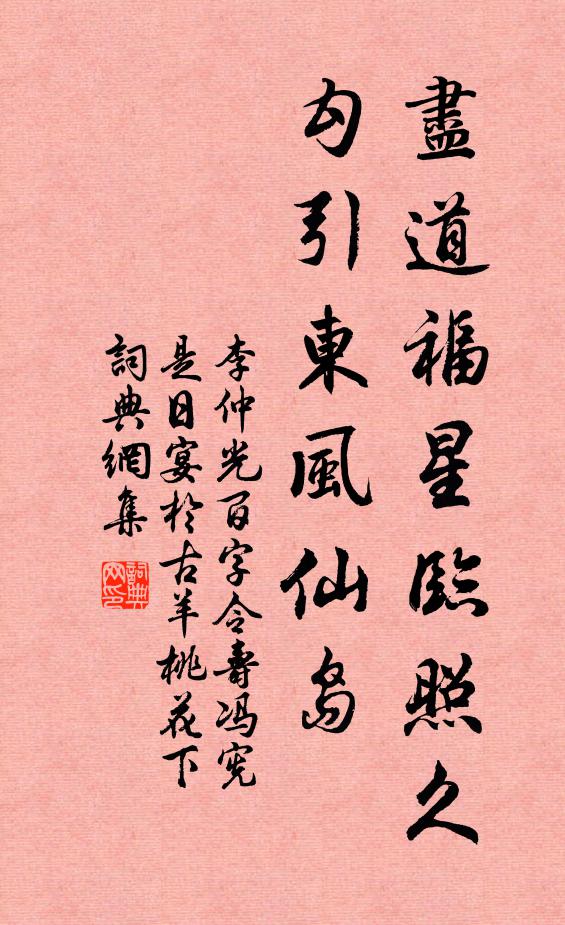 盡道福星臨照久
勾引東風仙島
李仲光百字令壽馮憲
是日宴於古羊桃花下
詞典網集
詞典网印